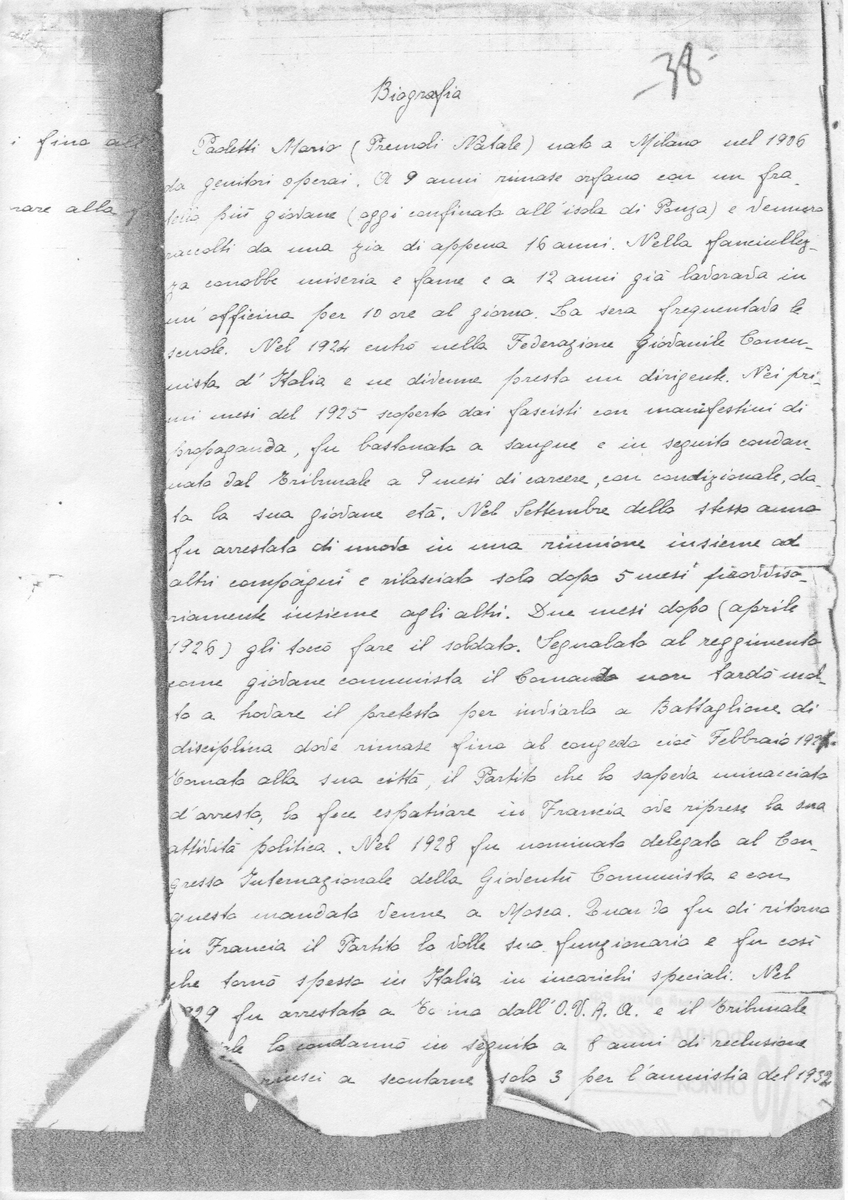 -38-
Biografia
i fino all
Paoletti Mario (Premoli Natale) nato a Milano nel 1906
da genitori operai. A 9 anni rimase orfano con un fra-
rare alla
tello più giovane (oggi confinato all'isola di Ponza) e vennero
raccolti da una zia di appena 16 anni. Nella fanciullez-
za conobbe miseria e fame e a 12 anni già lavorava in
un'officina per 10 ore al giorno. La sera frequentava le
scuole. Nel 1924 entrò nella Federazione Giovanile Comu-
nista d'Italia e ne divenne presto un dirigente. Nei pri-
mi mesi del 1925 scoperto dai fascisti con manifestini di
propaganda, fu bastonato a sangue e in seguito condan-
nato dal Tribunale a 9 mesi di carcere, con condizionale, da-
ta la sua giovane età. Nel Settembre dello stesso anno
fu arrestato di nuovo in una riunione insieme ad
altri compagni e rilasciato solo dopo 5 mesi provviso-
riamente insieme agli altri. Due mesi dopo (aprile
1926) gli toccò fare il soldato. Segnalato al reggimento
come giovane communista il Comando non tardò mol-
to a trovare il pretesto per inviarlo a Battaglione di
disciplina dove rimase fino al congedo cioè Febbraio
Tornato alla sua città, il Partito che lo sapeva minacciato
d'arresto, lo fece espatriare in Francia ove riprese la sua
attività politica. Nel 1928 fu nominato delegato al Con-
gresso Internazionale della Gioventù Communista e con
questo mandato venne a Mosca. Quando fu di ritorno
in Francia il Partito lo volle suo funzionario e fu così
che tornò spesso in Italia in incarichi speciali. Nel
1929 fu arrestato a Torino dall'O.V.R.A. e il Tribunale
lo condannò in seguito a 8 anni di reclusione
riuscì a scontarne solo 3 per l'amnistia del 1932